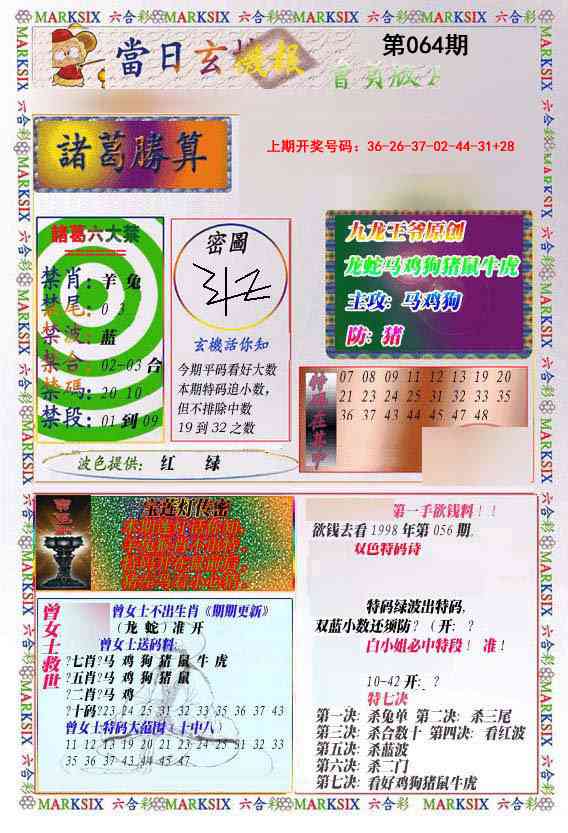 MARKSIX 六合彩 MARKSIX 六合彩 MARKSIX 六合彩 MARKSIX 六合彩 MARKSIX
當日玄機报
第064期
諸葛勝算
上期开奖号码：36-26-37-02-44-31+28
諸葛六大禁
禁肖：羊 兔
禁尾：0 3
禁波：蓝
禁合：02-03 合
禁碼：20 10
禁段：01 到 09
密圖
玄機活你知
今期平码看好大数
本期特码追小数，
但不排除中数
19 到 32 之数
九龙王爷原创
龙蛇马鸡狗猪鼠牛虎
主攻：马鸡狗
防：猪
特码在其中
07 08 09 11 12 13 19 20
21 23 24 25 31 32 33 35
36 37 43 44 45 47 48
波色提供： 红 绿
宝莲灯传密
曾女士救世
曾女士不出生肖《期期更新》
（龙 蛇）准 开
曾女士送码料：
?七肖?马 鸡 狗 猪 鼠 牛 虎
?五肖?马 鸡 狗 猪 鼠
?二肖?马 鸡
?十码?23 24 25 31 32 33 35 36 37 43
曾女士特码大范围（十中八）
11 12 13 19 20 21 23 24 25 31 32 33
35 36 37 43 44 45 47 48
第一手欲钱料！！
欲钱去看 1998 年第 056 期。
双色特码诗
特码绿波出特码，
双蓝小数还须防？（开：？
白小姐必中特段！ 准！
10-42 开：？
特七决
第一决：杀兔单 第二决：杀三尾
第三决：杀合数十 第四决：看红波
第五决：杀蓝波
第六决：杀二门
第七决：看好鸡狗猪鼠牛虎
MARKSIX 六合彩 MARKSIX 六合彩 MARKSIX 六合彩 MARKSIX 六合彩 MARKSIX